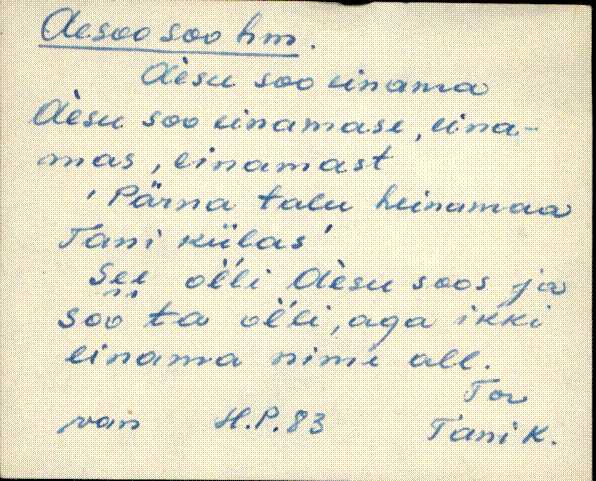 Aesoo soo hm.
Aèsu soo einama
Aèsu soo einamase, eina-
mas, einamast
'Pärna talu heinamaa
Tani külas'
See òlli Aèsu soos ja
soo ta òlli, aga ikki
einama nime all.
Tor
van H.P. 83 Tani K.